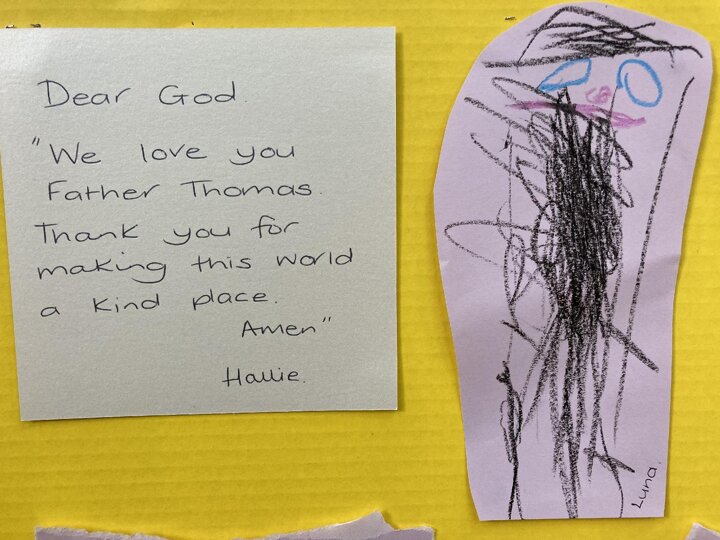 Dear God.
"We love you
Father Thomas.
Thank you for
making this world
a kind place.
Amen"
Hallie.
Luna.